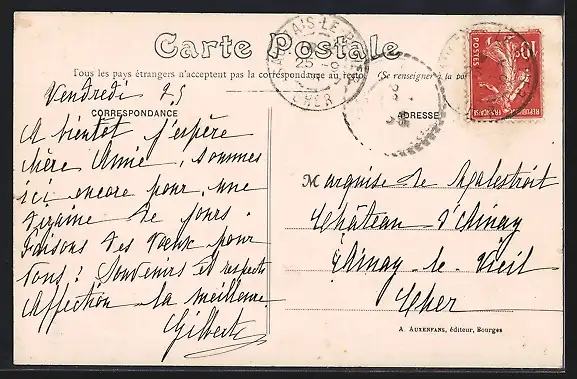 Carte Postale
Tous les pays étrangers n'acceptent pas la correspondance au recto (Se renseigner à la
CORRESPONDANCE
ADRESSE
Vendredi 25
A bientôt j'espère
chère Amie, sommes
ici encore pour une
dizaine de jours.
Faisons des vœux pour
vous! Souvenirs et respects
Affection la meilleure
Gilbert
Marquise de Malestroit
Château d'Ainay
Ainay-le-Vieil
Cher
A. AUXENFANS, éditeur, Bourges
10
POSTES
REPUBLIQUE FRANÇAISE
25
CHER